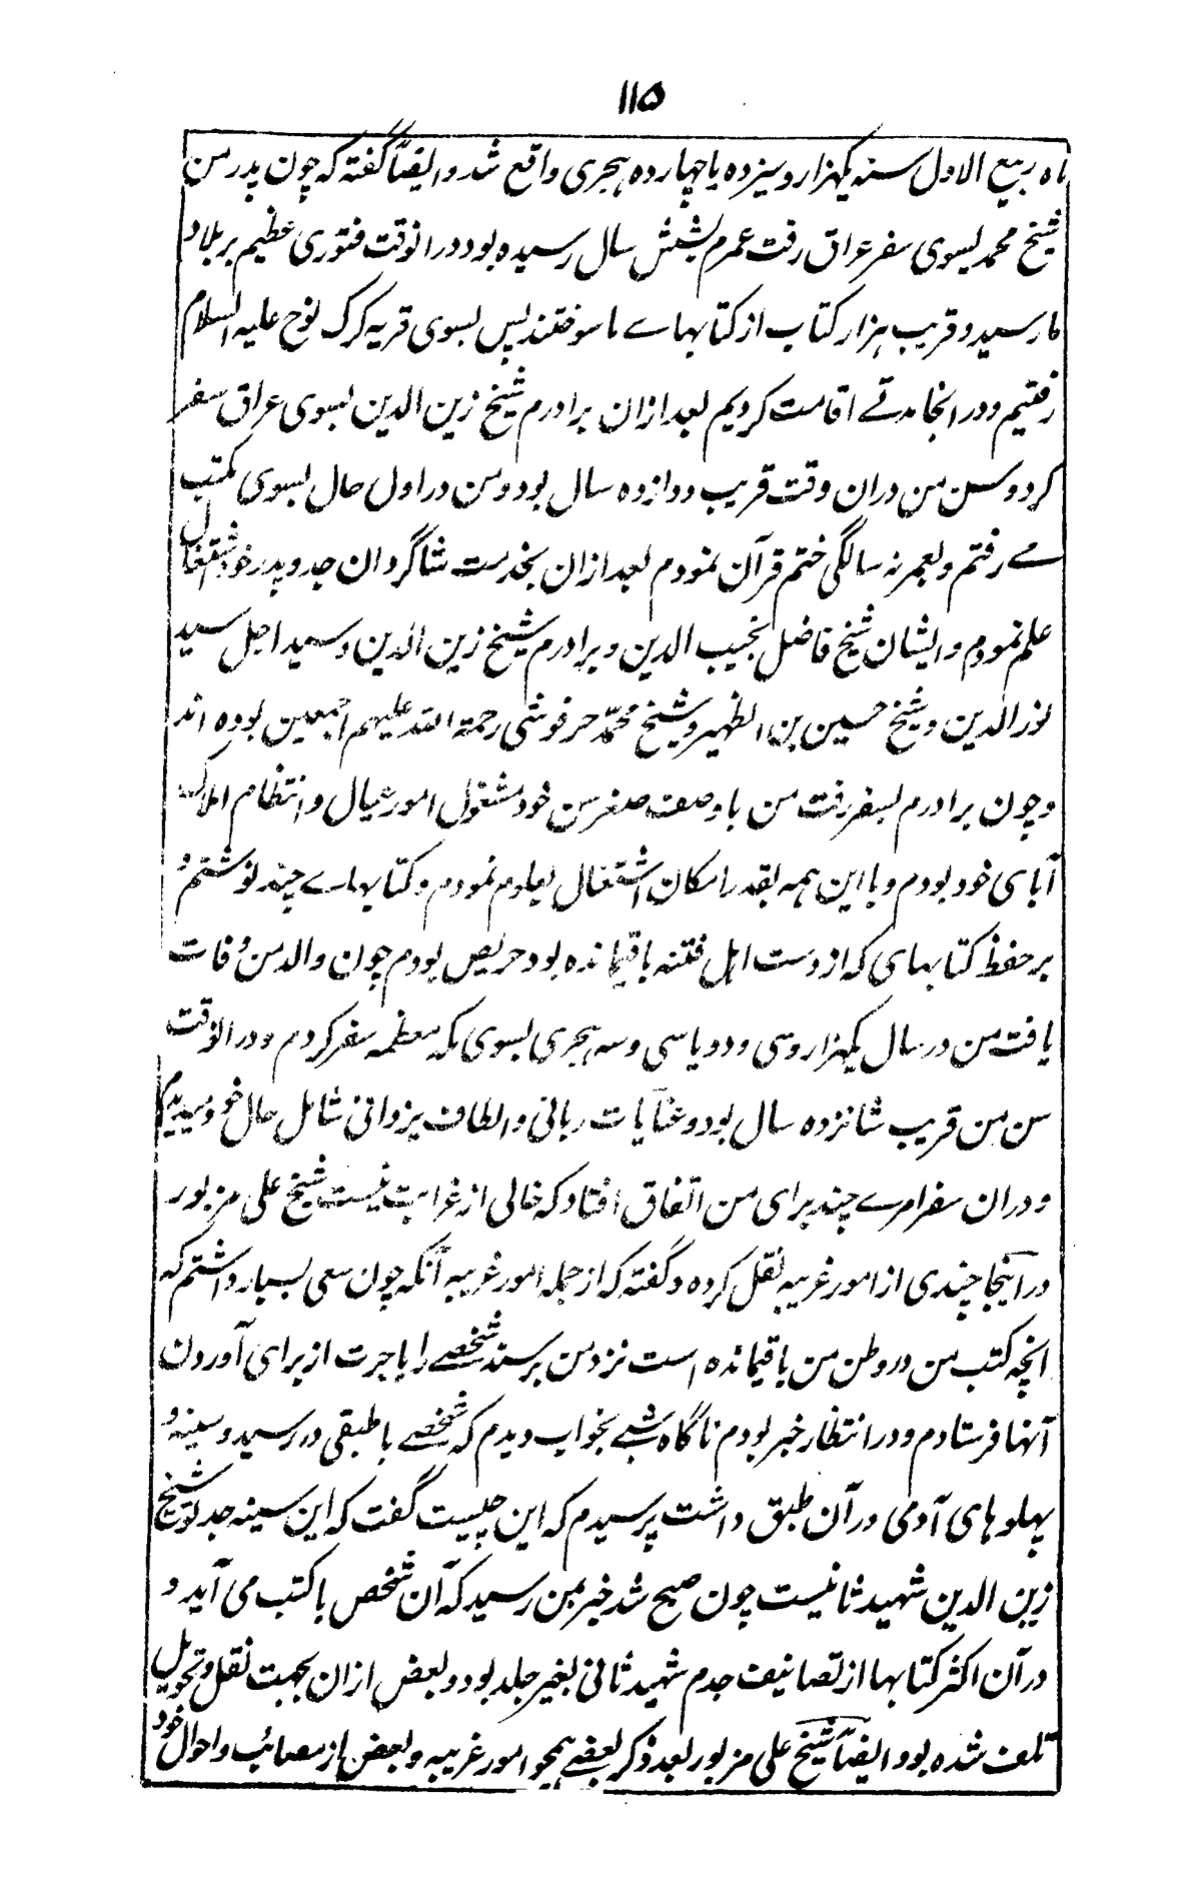 ۱۱۵
ماه ربیع الاول سنه یکهزار و سیزده یا چهارده هجری واقع شد و ایضاً گفته که چون پدر من
شیخ محمد بسوی سفر عراق رفت عمرم بشش سال رسیده بود در انوقت فتوری عظیم بر بلاد
ما رسید و قریب هزار کتاب از کتابهاے ما سوختند پس بسوی قریه کرک نوح علیه السلام
رفتیم و در انجا مدتے اقامت کردیم بعد ازان برادرم شیخ زین الدین بسوی عراق سفر
کرد و سن من دران وقت قریب دوازده سال بود و من در اول حال بسوی مکتب
مے رفتم و بعمر نه سالگی ختم قرآن نمودم بعد ازان بخدمت شاگردان جد و پدر خود اشتغال
علم نمودم و ایشان شیخ فاضل نجیب الدین و برادرم شیخ زین الدین و سید اجل سید
نور الدین و شیخ حسین بن الظهیر و شیخ محمد حرفوشی رحمة الله علیهم اجمعین بوده اند
و چون برادرم بسفر رفت من با وصف صغر سن خود مشغول امور عیال و انتظام املاک
آبای خود بودم و با این همه بقدر امکان اشتغال بعلوم نمودم و کتابهاے چند نوشتم و
بر حفظ کتابهای که از دست اهل فتنه باقیمانده بود حریص بودم چون والد من وفات
یافت من در سال یکهزار و سی و دو یا سی و سه هجری بسوی مکه معظمه سفر کردم و در انوقت
سن من قریب شانزده سال بود و عنایات ربانی و الطاف یزدانی شامل حال خود میدیدم
و دران سفر امرے چند برای من اتفاق افتاد که خالی از غرابت نیست شیخ علی مزبور
در اینجا چندی از امور غریبه نقل کرده و گفته که از جمله امور غریبه آنکه چون سعی بسیار داشتم که
انچه کتب من در وطن من باقیمانده است نزد من برسند شخصے را باجرت از برای آوردن
آنها فرستادم و در انتظار خبر بودم ناگاه شبے بخواب دیدم که شخصے با طبقی در رسید و سینه و
پهلوهای آدمی در آن طبق داشت پرسیدم که این چیست گفت که این سینه جد تو شیخ
زین الدین شهید ثانیست چون صبح شد خبر بمن رسید که آن شخص با کتب می آید و
در آن اکثر کتابها از تصانیف جدم شهید ثانی بغیر جلد بود و بعض ازان بجهت نقل و تحویل
تلف شده بود و ایضاً شیخ علی مزبور بعد ذکر بعضے همچو امور غریبه و بعض از مصائب و احوال خود